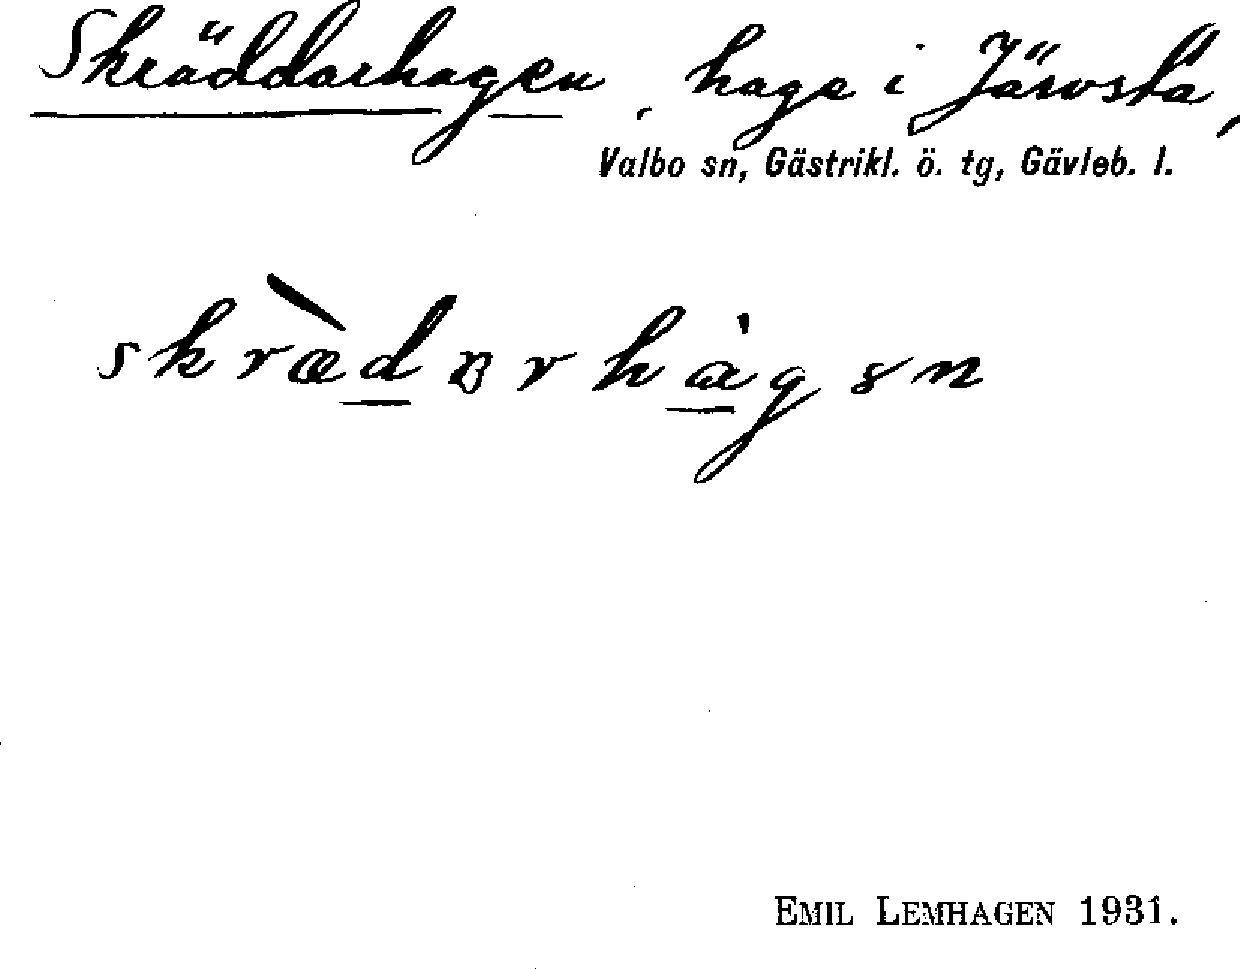 Skräddarhagen, hage i Järvsta,
Valbo sn, Gästrikl. ö. tg, Gävleb. l.
skræ̀dɐrhɑ̀gən
EMIL LEMHAGEN 1931.